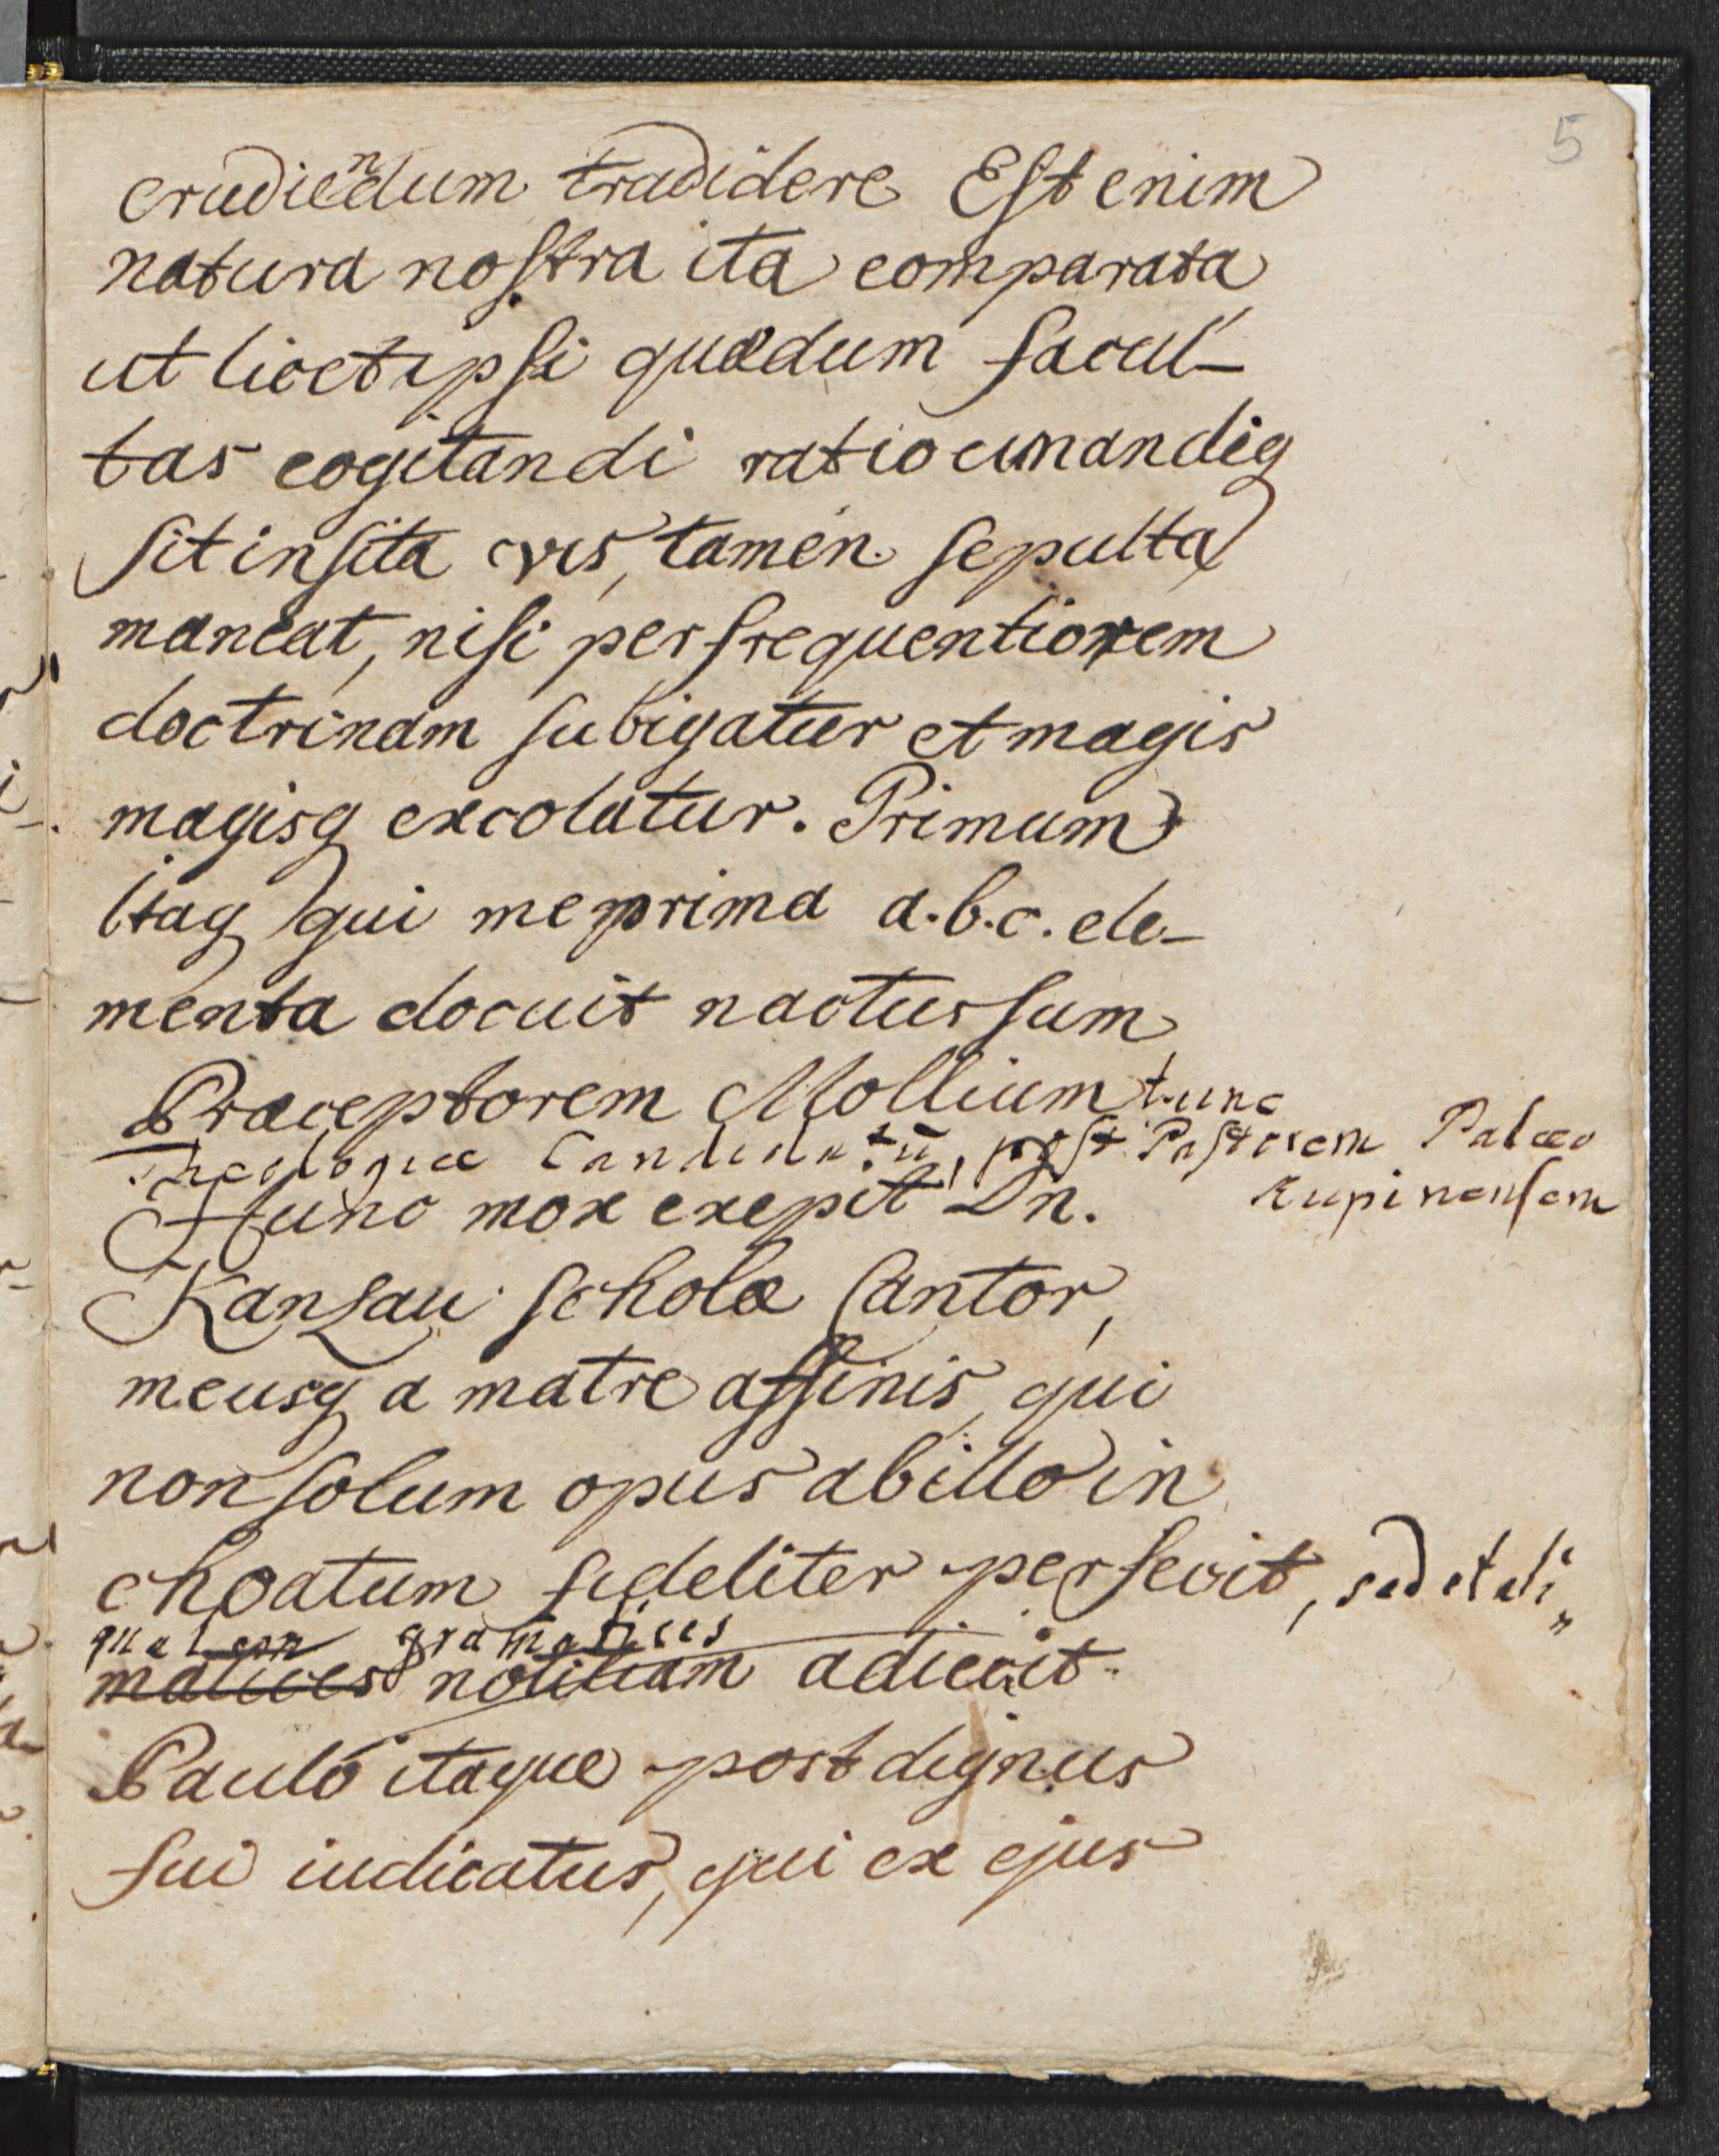 5
erudiendum tradidere Est enim
natura nostra ita comparata
ut licet ipsi quædum facul-
tas cogitandi ratiocinandiq
sit insita vis, tamen sepulta
maneat, nisi per frequentiorem
doctrinam subigatur et magis
magisq excolatur. Primum
Itaq qui me prima a.b.c. ele-
menta docuit nactus sum
Præceptorem Mollium tunc
Theologiæ Candidatū, post Pastorem Palæo
Rupinensem
Hunc mox exepit Dn.
Kanzau scholæ Cantor,
meusq a matre affinis, qui
non solum opus ab illo in
choatum fideliter perfecit, sed et ali„
qualem gramatices
matices notitiam adiecit.
Paulo itaque post dignus
fui iudicatus, qui ex ejus